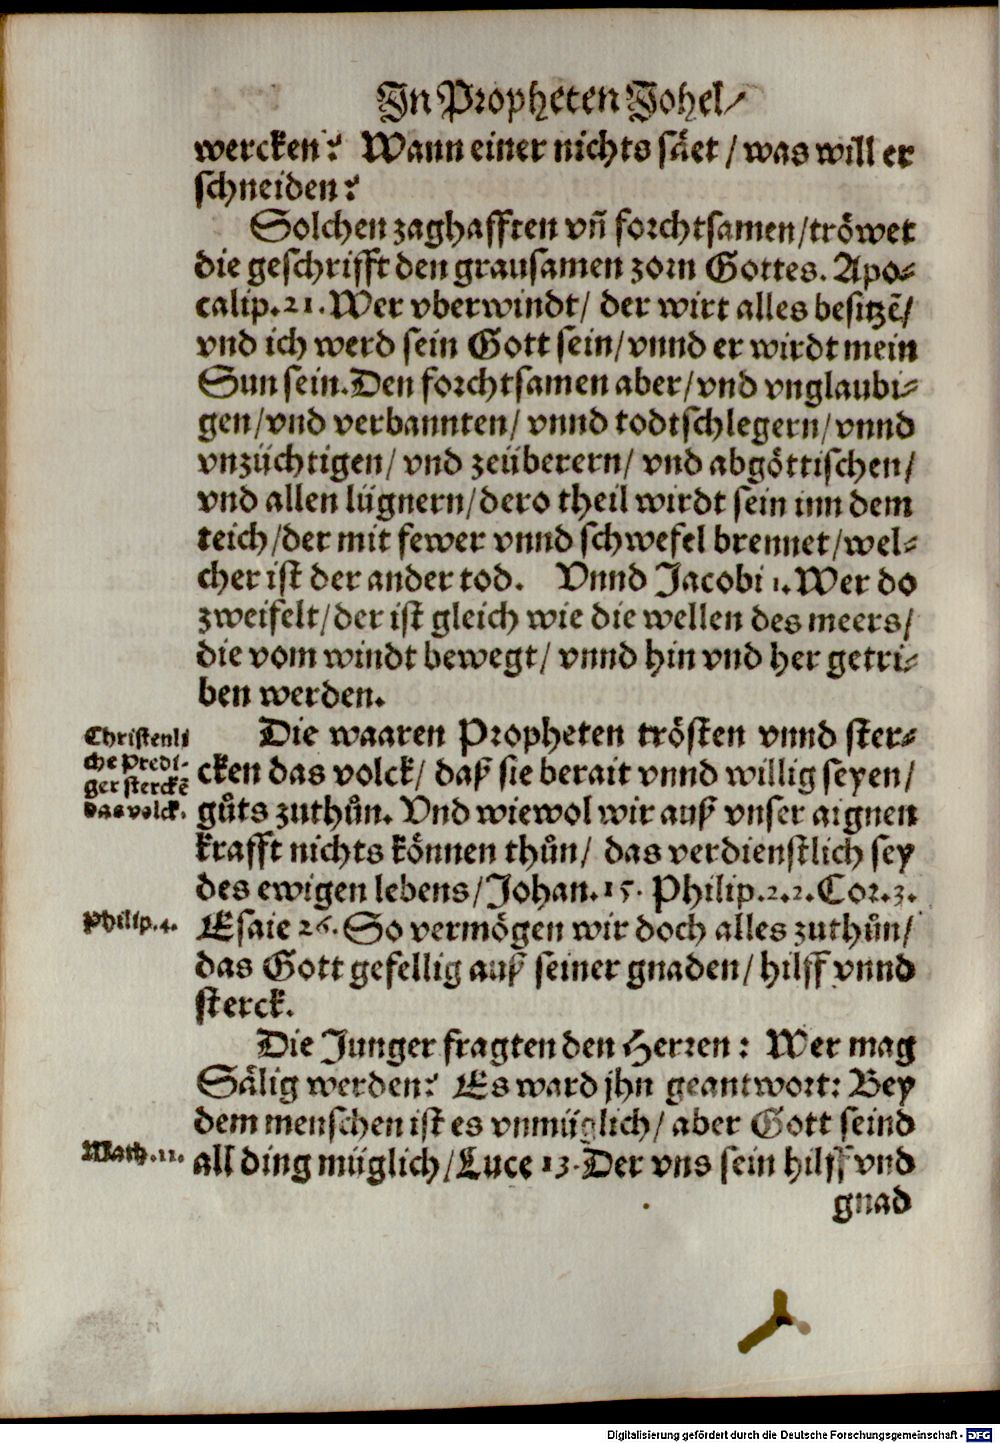 In Propheten Johel/
wercken? Wann einer nichts säet / was will er
schneiden?
Solchen zaghafften vñ forchtsamen/tröwet
die geschrifft den grausamen zorn Gottes. Apo-
calip.21. Wer vberwindt/ der wirt alles besitzē/
vnd ich werd sein Gott sein/vnnd er wirdt mein
Sun sein. Den forchtsamen aber/vnd vnglaubi-
gen/vnd verbannten/ vnnd todtschlegern/vnnd
vnzüchtigen/ vnd zeüberern/ vnd abgöttischen/
vnd allen lügnern/dero theil wirdt sein inn dem
teich/der mit fewer vnnd schwefel brennet/wel-
cher ist der ander tod. Vnnd Jacobi 1. Wer do
zweifelt/der ist gleich wie die wellen des meers/
die vom windt bewegt/ vnnd hin vnd her getri-
ben werden.
Christenli
che Predi-
ger sterckē
das volck.
Die waaren Propheten trösten vnnd ster-
cken das volck/ daß sie berait vnnd willig seyen/
gůts zuthůn. Vnd wiewol wir auß vnser aignen
krafft nichts können thůn/ das verdienstlich sey
des ewigen lebens/Johan.15. Philip.2.2.Cor.3.
Philip.4.
Esaie 26. So vermögen wir doch alles zuthůn/
das Gott gefellig auß seiner gnaden/ hilff vnnd
sterck.
Die Junger fragten den Herren: Wer mag
Sälig werden? Es ward jhn geantwort: Bey
dem menschen ist es vnmüglich/ aber Gott seind
Math.11.
all ding müglich/Luce 13. Der vns sein hilff vnd
gnad
Digitalisierung gefördert durch die Deutsche Forschungsgemeinschaft - DFG